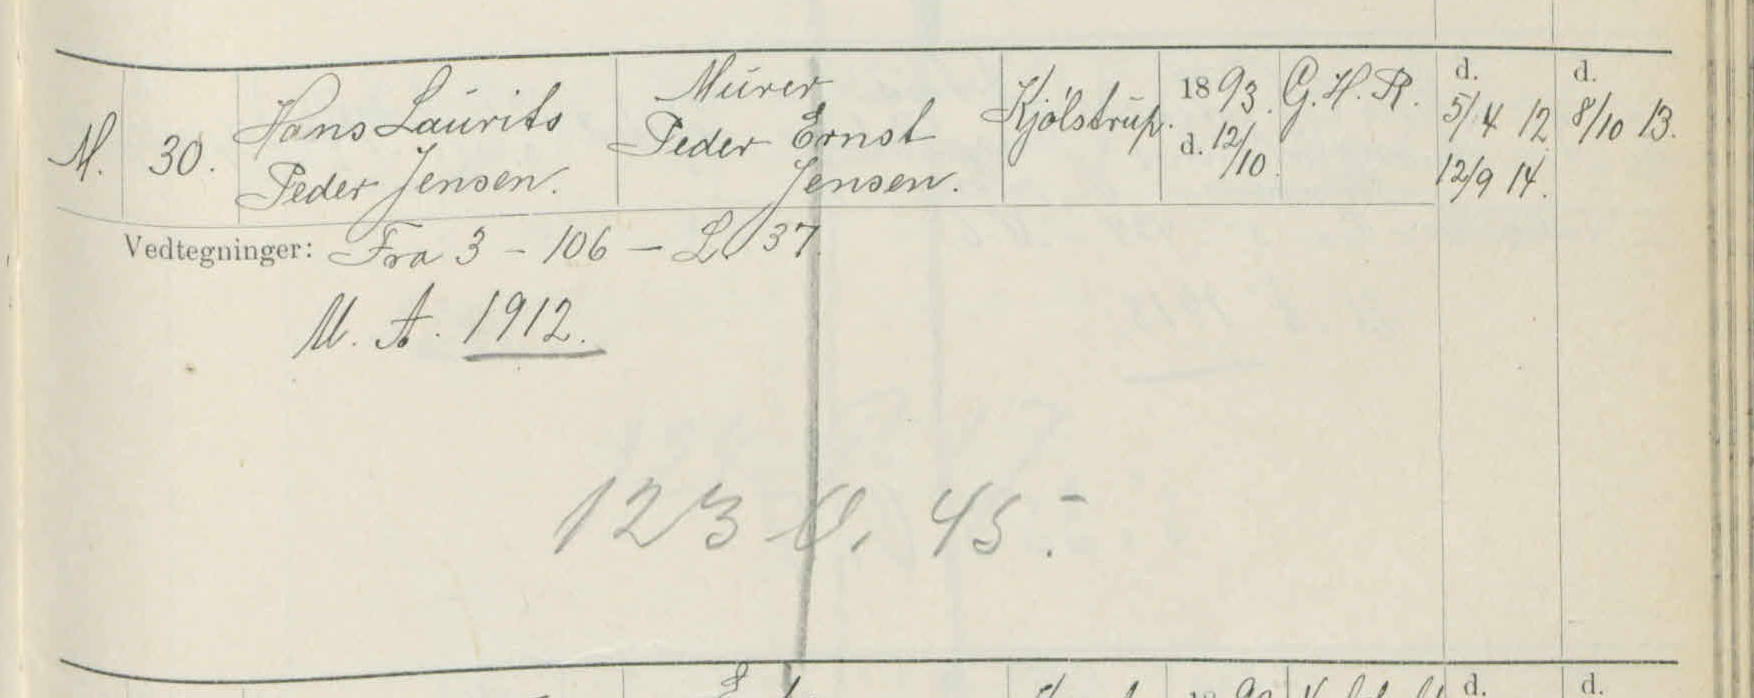 M. 30. Hans Laurits Peder Jensen. Murer Peder Ernst Jensen. Kjölstrup. 1893. d. 12/10. G. H. R. d. 5/4 12 12/9 14. d. 8/10 13.
Vedtegninger: Fra 3 - 106 - L 37.
U. A. 1912.
123 O. 45.-
d. d.